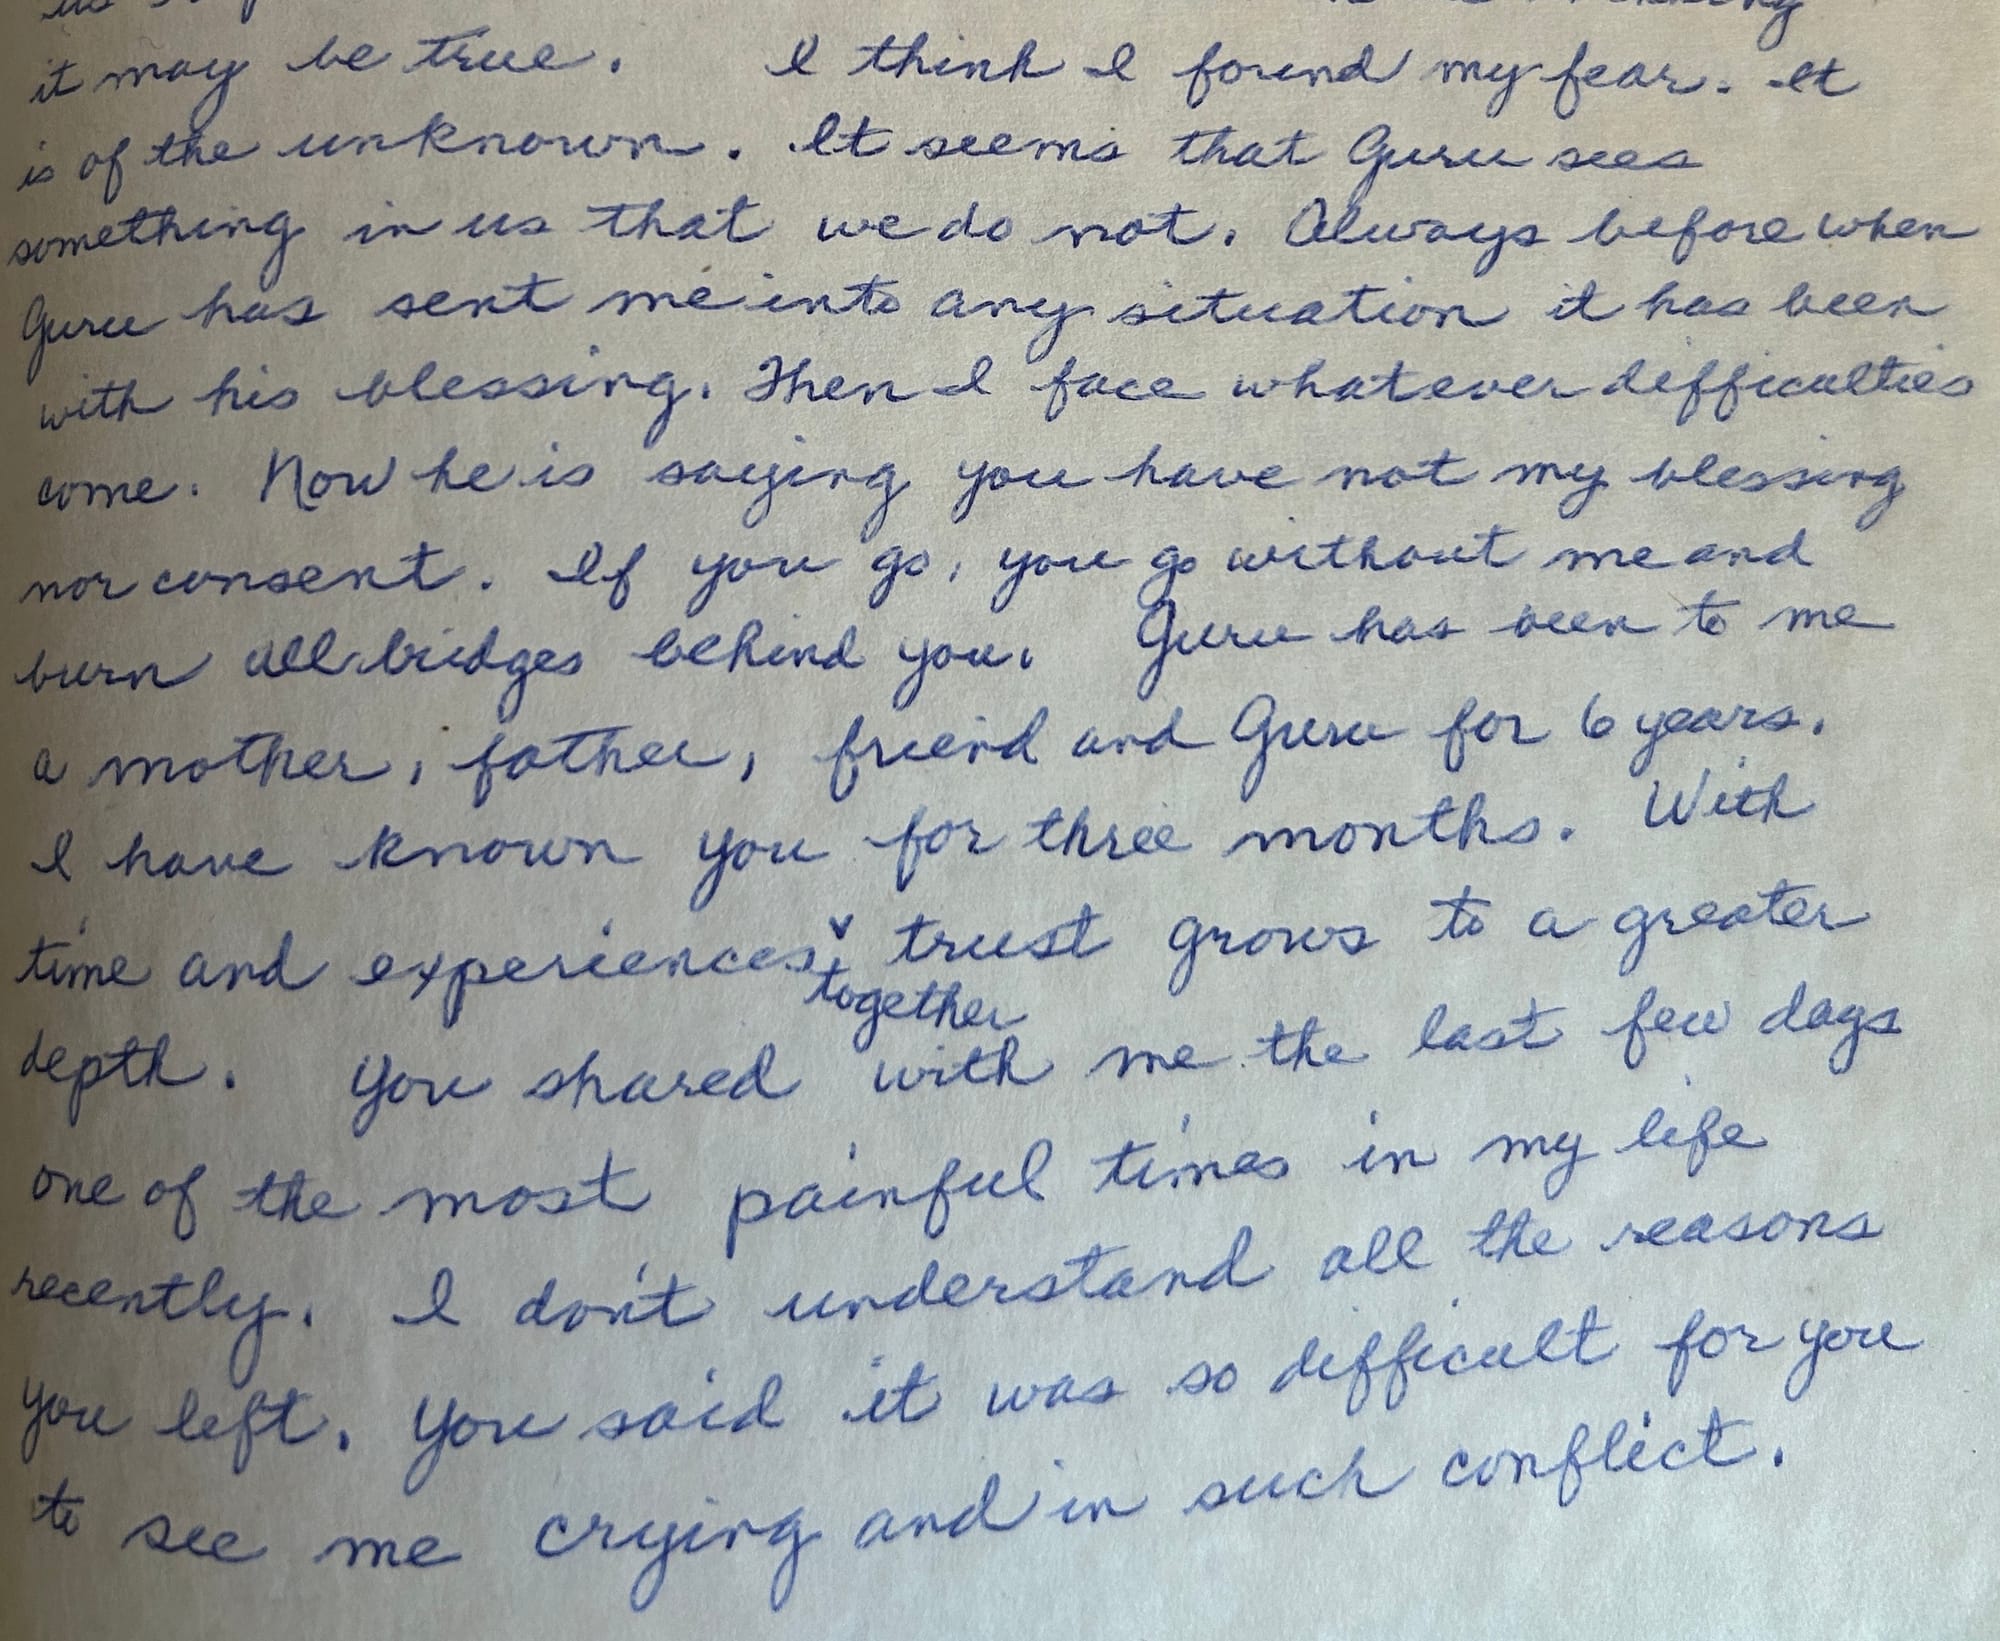 it may be true. I think I found my fear. It
is of the unknown. It seems that Guru sees
something in us that we do not. Always before when
Guru has sent me into any situation it has been
with his blessing. Then I face whatever difficulties
come. Now he is saying you have not my blessing
nor consent. If you go, you go without me and
burn all bridges behind you. Guru has been to me
a mother, father, friend and Guru for 6 years.
I have known you for three months. With
time and experiences trust grows to a greater
together
depth. You shared with me the last few days
one of the most painful times in my life
recently. I don't understand all the reasons
you left. You said it was so difficult for you
to see me crying and in such conflict.